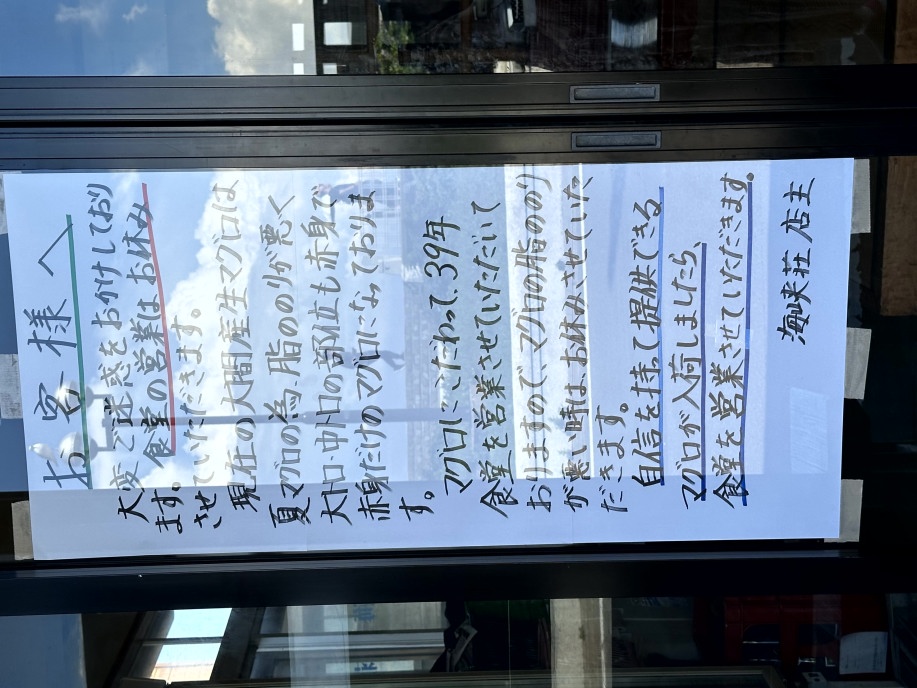 お客様へ
大変ご迷惑をおかけしており
ます。食堂の営業はお休み
させていただきます。
現在の大間産生マグロは
夏マグロの為、脂ののりが悪く
大トロ中トロの部位も赤身で
赤身だけのマグロになっておりま
す。
マグロにこだわって、39年
食堂を営業させていただいて
おりますので、マグロの脂ののり
が悪い時は、お休みさせていた
だきます。
自信を持って提供できる
マグロが入荷しましたら、
食堂を営業させていただきます。
海峡荘 店主